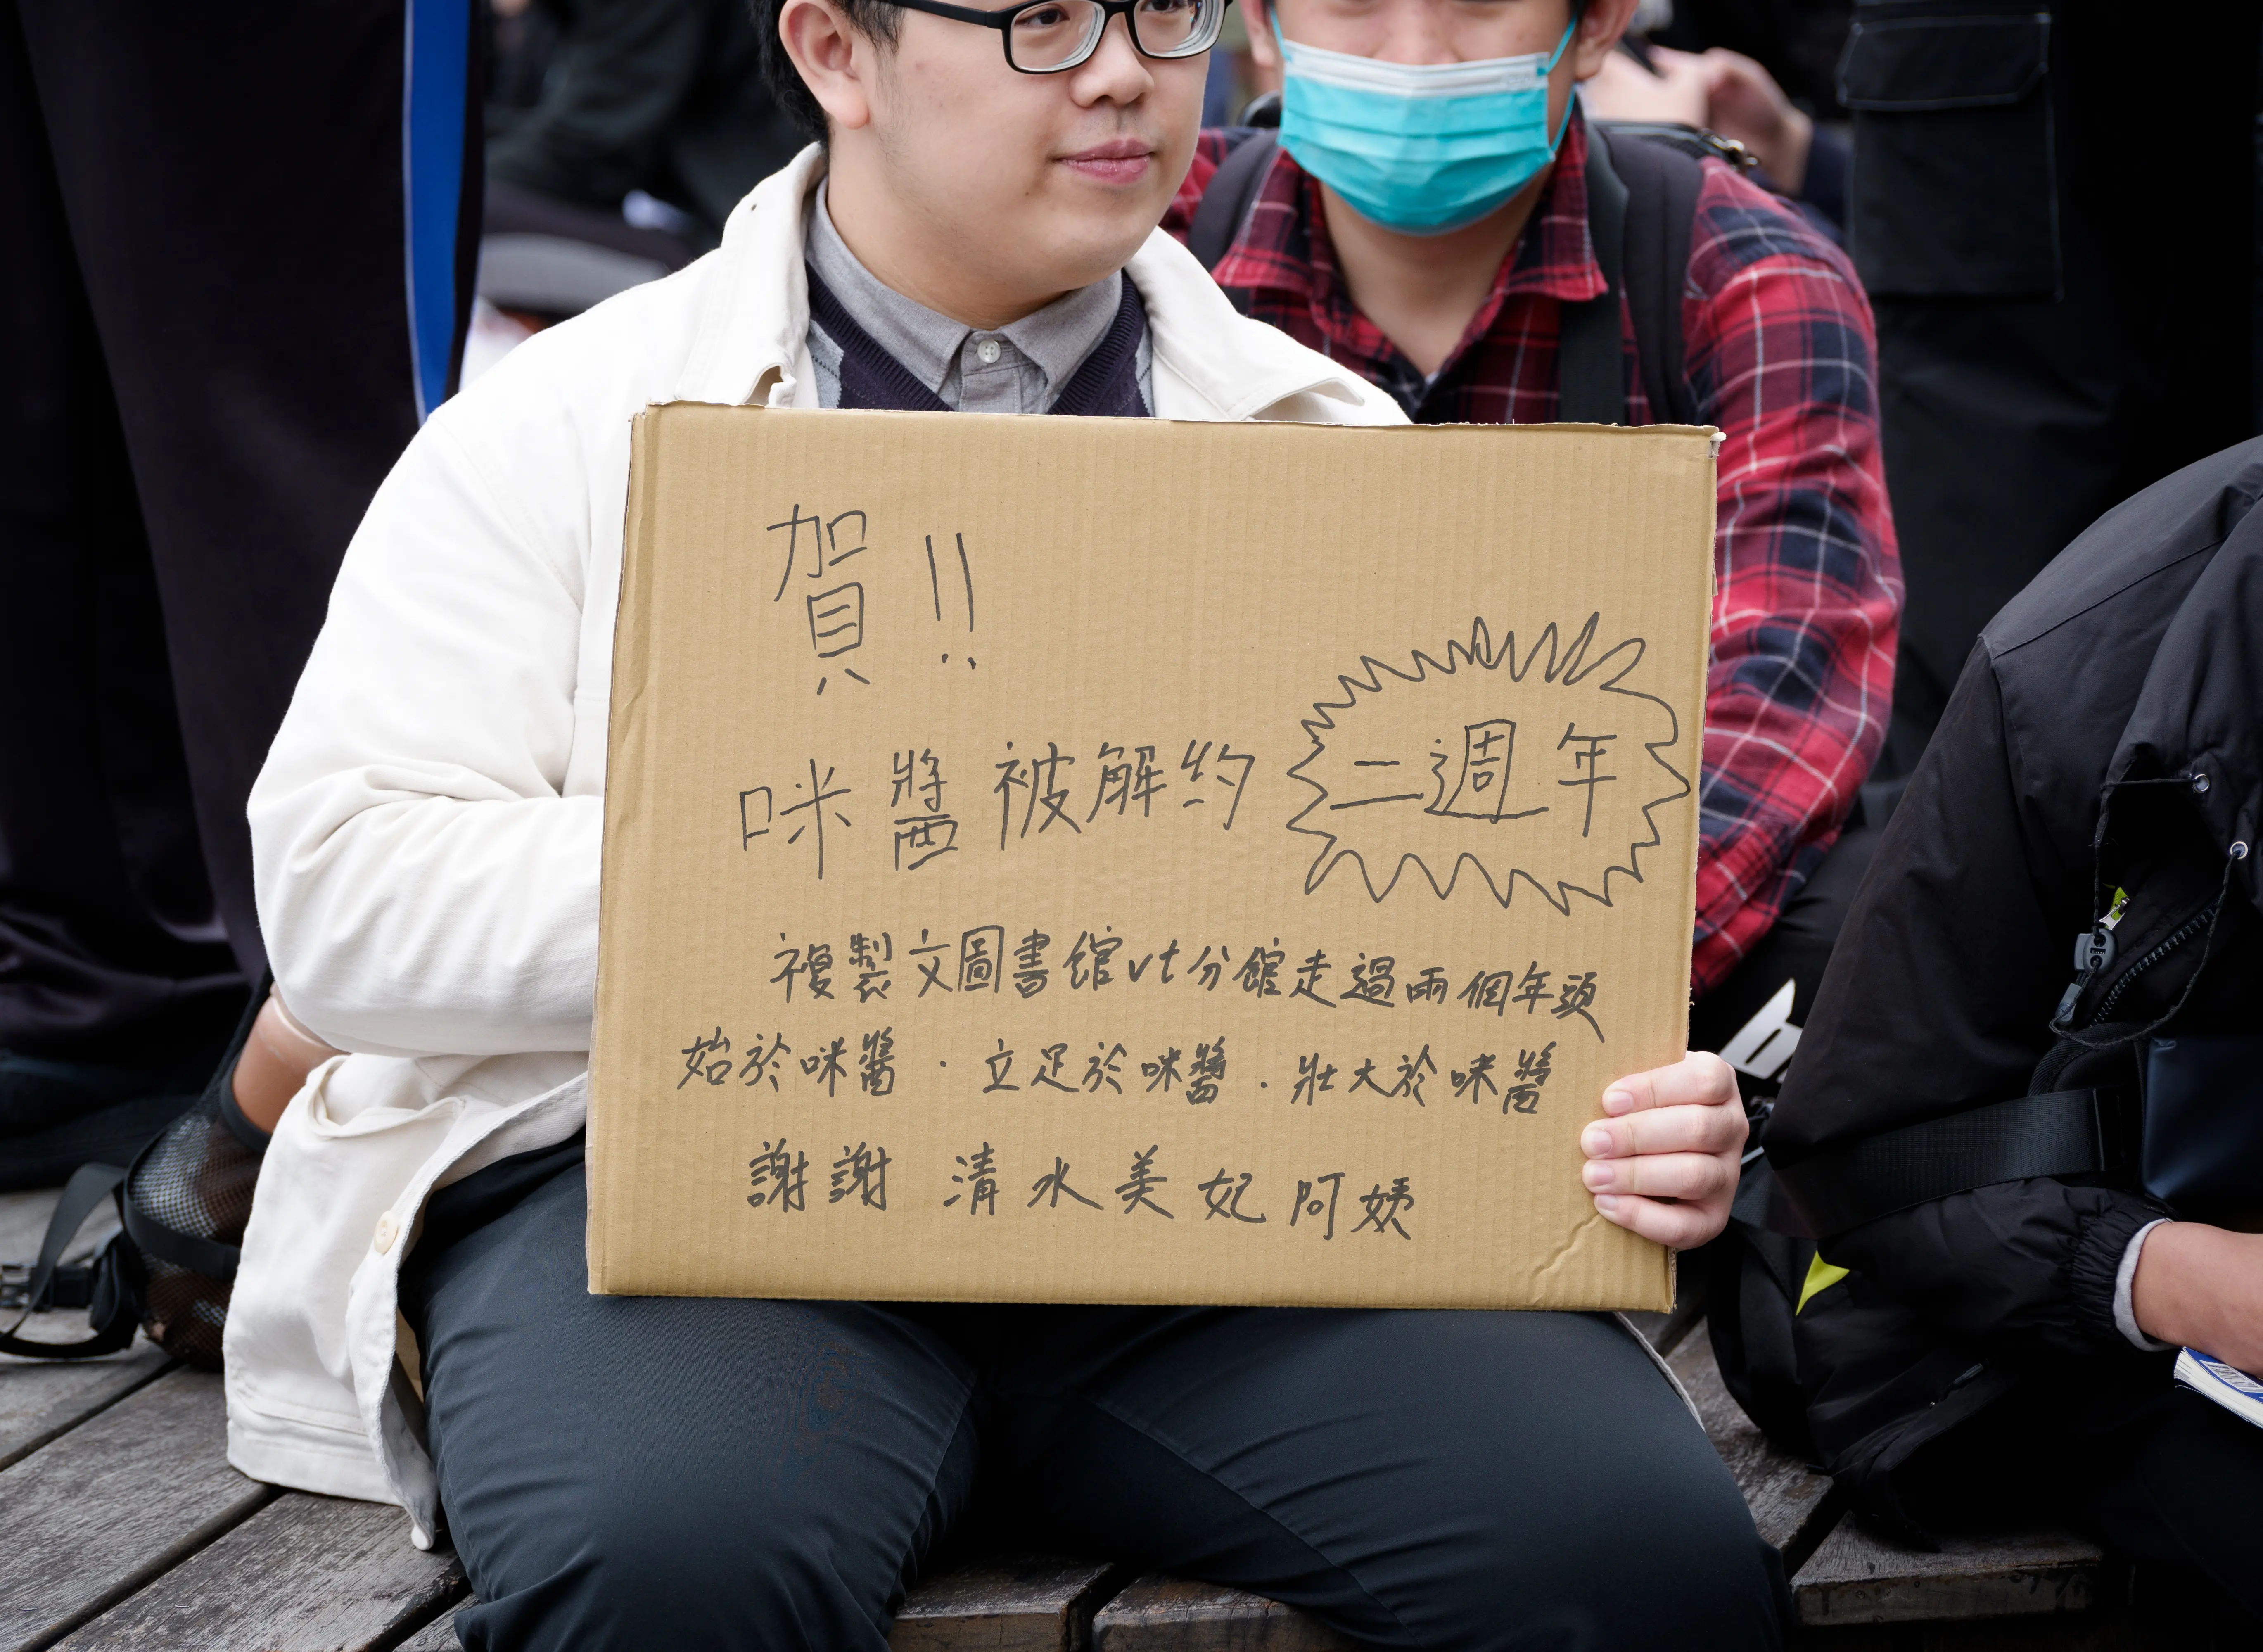 賀!!
咪醬被解約 二週年
複製文圖書館vt分館走過兩個年頭
始於咪醬．立足於咪醬．壯大於咪醬
謝謝 清水美妃阿姨